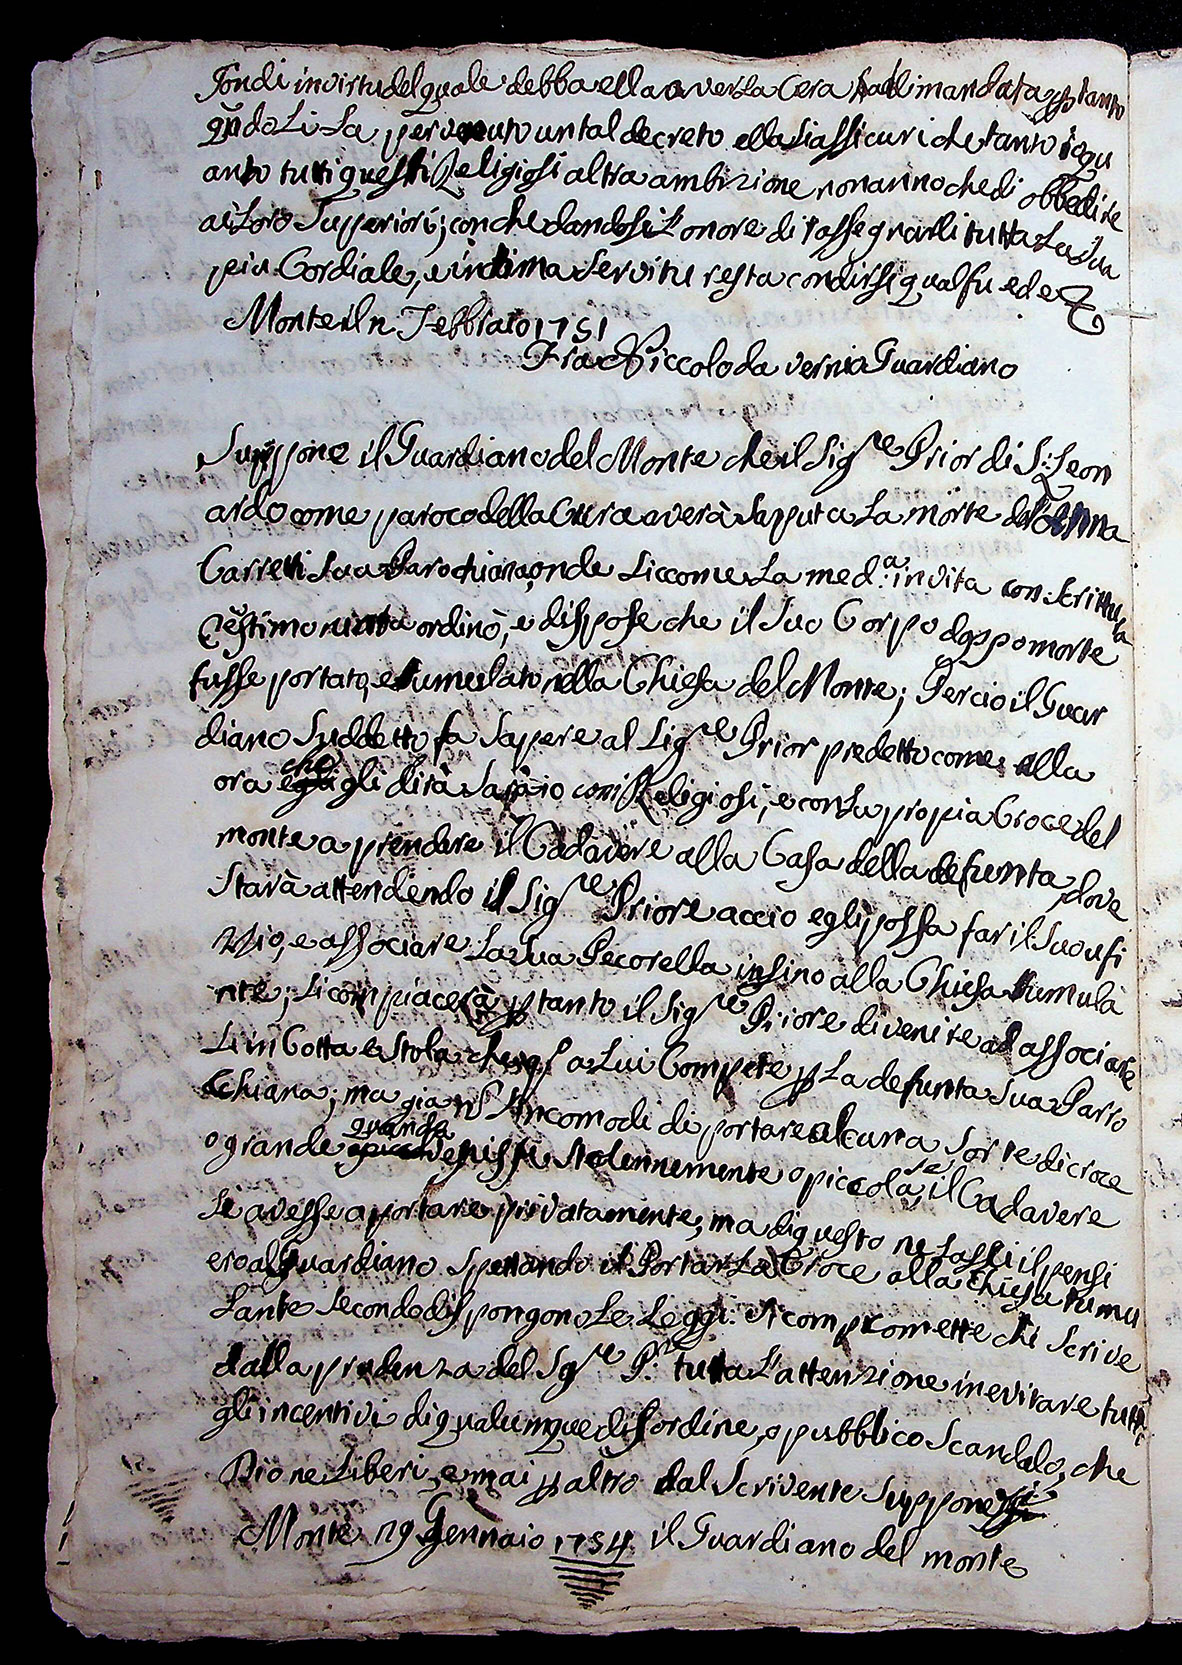 fondi in virtu del quale debba ella aver la Cera adimandata, p tanto
qndo Li Sa pervenuto un tal decreto ella si assicuri che tanto io qu
anto tutti questi Religiosi altra ambizione non anno che di obbedire
ai Loro Supperiori; con che dandosi l'onore di rassegnarli tutta La Sua
piu Cordiale, e intima Servitu resta con dirsi qual fu ed e &
Monte il n Febbraio 1751
Fra Niccolo da vernia Guardiano
Suppone il Guardiano del Monte che il Sigre Prior di S: Leon
ardo come paroco della Cura averà Sapputa La morte dell'Anna
Carreti Sua Parochiana, onde Siccome La med:a in vita con Scrittura
testimoniata ordinò, e dispose che il Suo Corpo doppo morte
fusse portato, e tumulato nella Chiesa del Monte; Percio il Guar
diano Suddetto fa Sapere al Sigre Prior predetto come alla
ora che gli dirà Sarà io con i Religiosi, e con La propia Croce del
monte a prendere il Cadavere alla Casa della defunta, dove
Starà attendendo il Sigre Priore accio egli possa far il Suo ufi
Zio, e associare La Sua Pecorella insino alla Chiesa tumula
nte; Si compiacerà p tanto il Sigre Priore di venire ad associar
Li in Cotta e Stola che a Lui Compete p La defunta Sua Paro
chiana; ma gia n S'Incomodi di portare alcuna Sorte di croce
o grande quando venisse Solennemente o piccola, se il Cadavere
Si avesse a portare privatamente, ma di questo ne Lassi il pensi
ero al Guardiano Spettando il Portar La Croce alla Chiesa tumu
Lante Secondo dispongono Le Leggi. Si compromette chi Scrive
dalla prudenza del Sigre P:re tutta L'attenzione in evitare tutti
gli incentivi di qualunque disordine, o pubblico Scandalo, che
Dio ne Liberi, e mai p altro dal Scrivente Suppone
Monte 29 Gennaio 1754 il Guardiano del monte